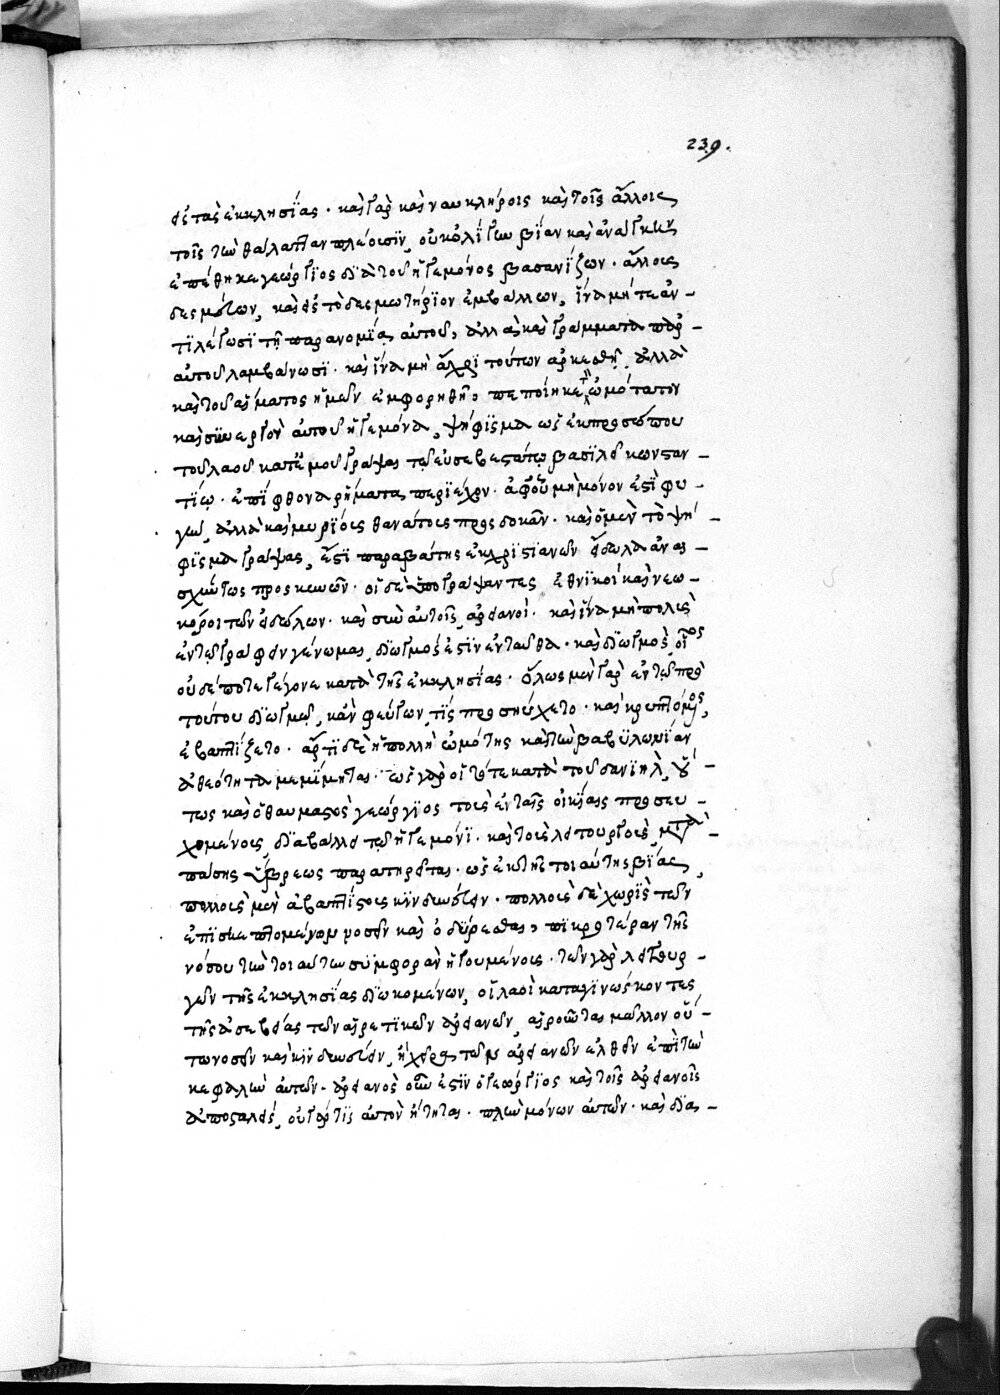 239.
εἰς τὰς ἐκκλησίας · καὶ γὰρ καὶ ναυκλήροις καὶ τοῖς ἄλλοις
τοῖς τὴν θάλατταν πλέουσιν, οὐκ ὀλίγην βίαν καὶ ἀνάγκην
ἐπέθηκε γεώργϊος δϊὰ τοῦ ἡγεμόνος βασανίζων · ἄλλους
δεσμεύων, καὶ εἰς τὸ δεσμωτήριον ἐμβάλλων, ἵνα μήτε ἀν-
τϊλέγωσϊ τῇ παρανομίᾳ αὐτοῦ, ἀλλὰ καὶ γράμματα παρ᾽-
αὐτοῦ λαμβάνωσϊ · καὶ ἵνα μὴ ἄχρϊ τούτων ἀρκεσθῇ, ἀλλὰ
καὶ τοῦ αἵματος ἡμῶν ἐμφορηθῇ, πεποίηκε τὸν ὠμότατον
καὶ συνεργὸν αὐτοῦ ἡγεμόνα, ψήφϊσμα ὡς ἐκ προσώπου
τοῦ λαοῦ κατ᾽ ἐμοῦ γράψαι τῷ εὐσεβεστάτῳ βασϊλεῖ κωνσταν-
τίῳ · ἐπίφθονα ῥήματα περϊέχον · ἀφ᾽ οὗ μὴ μόνον ἐστὶ φυ-
γεῖν, ἀλλὰ καὶ μυρίους θανάτους προσδοκᾶν · καὶ ὁ μὲν τὸ ψή-
φϊσμα γράψας, ἐστὶ παραβάτης ἐκ χρϊστϊανῶν εἴδωλα ἀναι-
σχύντως προσκυνῶν · οἱ δὲ ὑπογράψαντες ἐθνϊκοὶ καὶ νεω-
κόροι τῶν εἰδώλων · καὶ σὺν αὐτοῖς, ἀρειανοί · καὶ ἵνα μὴ πολλὰ
ἐν τῷ γράφειν γένωμαι, δϊωγμός ἐστϊν ἐνταῦθα · καὶ δϊωγμὸς, οἷος
οὐδέποτε γέγονε κατὰ τῆς ἐκκλησίας · ὅλως μὲν γὰρ ἐν τῷ πρὸ
τούτου δϊωγμῷ, κἂν φεύγων, τίς προσηύχετο · καὶ κρυπτόμενος,
ἐβαπτίζετο · ἄρτϊ δὲ ἡ πολλὴ ὠμότης καὶ τὴν βαβϋλωνίαν
ἀθεότητα μεμίμηται · ὡς γὰρ οἱ τότε κατὰ τοῦ δανϊὴλ, οὕ-
τως καὶ ὁ θαυμαστὸς γεώργϊος τοὺς ἐν ταῖς οἰκίαις προσευ-
χομένους, δϊαβάλλει τῷ ἡγεμόνϊ · καὶ τοὺς λειτουργοὺς, μετὰ-
πάσης ὕβρεως παρατηρεῖται · ὡς ἐκ τῆς τοιαύτης βίας,
πολλοὺς μὲν ἀβαπτίστους κϊνδυνεύειν · πολλοὺς δὲ χωρὶς τῶν
ἐπϊσκεπτομένων νοσεῖν καὶ ὀδύρεσθαι, πϊκροτέραν τῆς
νόσου τὴν τοιαύτην συμφορὰν ἡγουμένους · τῶν γὰρ λειτουρ-
γῶν τῆς ἐκκλησίας δϊωκομένων, οἱ λαοὶ καταγϊνώσκοντες
τῆς ἀσεβείας τῶν αἱρετϊκῶν ἀρειανῶν, αἱροῦνται μᾶλλον οὕ-
τω νοσεῖν καὶ κϊνδυνεύειν, ἢ χεῖρα τῶν ἀρειανῶν ἐλθεῖν ἐπὶ τὴν
κεφαλὴν αὐτῶν · ἀρειανὸς οὖν ἐστϊν ὁ γεώργϊος καὶ τοῖς ἀρειανοῖς
ἀποσταλείς, οὐ γάρ τϊς αὐτὸν ᾔτηται · πλὴν μόνων αὐτῶν · καὶ δϊα-